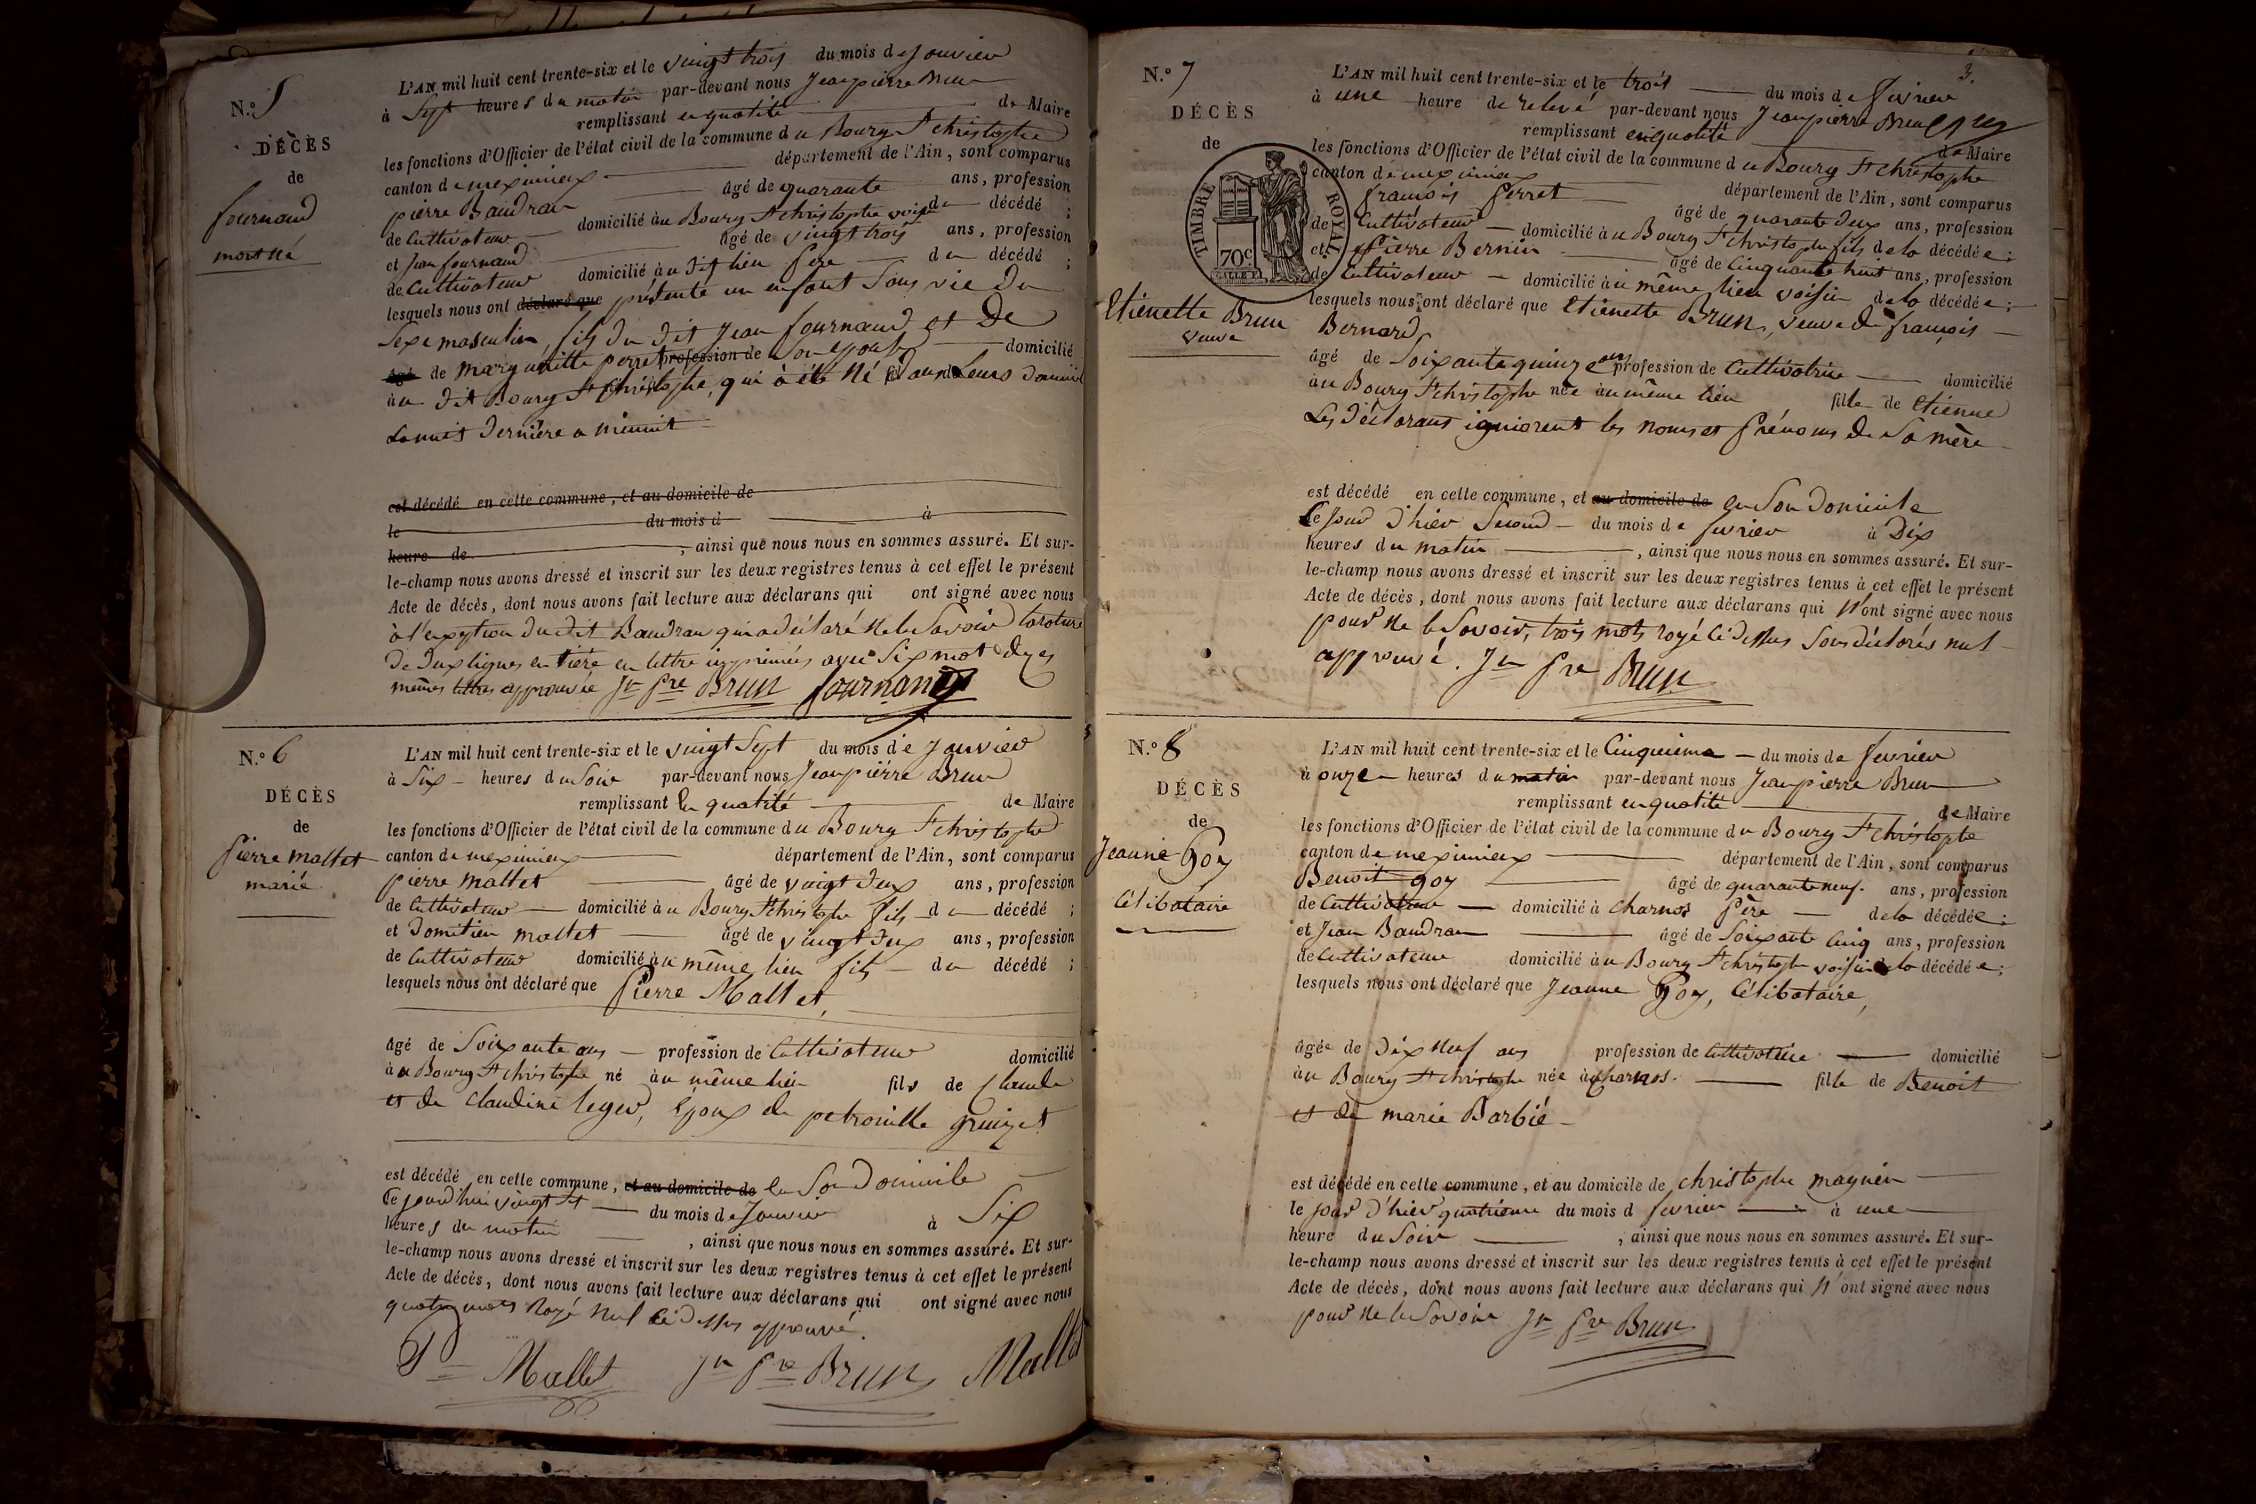 N.º 5
DÉCÈS
de
fournand
mort né
L'AN mil huit cent trente-six et le vingt trois du mois de Janvier
à sept heures du matin par-devant nous Jean pierre Brun
remplissant en qualité de Maire
les fonctions d'Officier de l'état civil de la commune du Bourg St christophe
canton de meximieux département de l'Ain, sont comparus
pierre Baudran âgé de quarante ans, profession
de Cultivateur domicilié au Bourg St christophe voisin du décédé ;
et Jean fournand âgé de vingt trois ans, profession
de Cultivateur domicilié au dit lieu père du décédé ;
lesquels nous ont déclaré que présenté un enfant sans vie du
Sexe masculin, fils du dit Jean fournand et De
âgé de marguéritte perret profession de Son épouse domicilié
au dit Bourg St christophe, qui à été Né dans Leurs domicile
La nuit dernière a minuit
est décédé en cette commune, et au domicile de
le du mois d à
heure de , ainsi que nous nous en sommes assuré. Et sur-
le-champ nous avons dressé et inscrit sur les deux registres tenus à cet effet le présent
Acte de décès, dont nous avons fait lecture aux déclarans qui ont signé avec nous
à l'exeption du dit Baudran qui a déclaré Ne le Savoir la rature
De deux lignes entière en lettre imprimées avec Six mot
mêmes lettres approuvée Jn Pre BRUN fournand
N.º 6
DÉCÈS
de
Pierre Mallet
marié
L'AN mil huit cent trente-six et le vingt Sept du mois de Janvier
à Six heures du Soir par-devant nous Jean pierre Brun
remplissant En qualité de Maire
les fonctions d'Officier de l'état civil de la commune du Bourg St christophe
canton de meximieux département de l'Ain, sont comparus
pierre Mallet âgé de vingt deux ans, profession
de Cultivateur domicilié au Bourg St christophe fils du décédé ;
et Domitien mallet âgé de vingt deux ans, profession
de Cultivateur domicilié au même lieu fils du décédé ;
lesquels nous ont déclaré que Pierre Mallet,
âgé de Soixante ans profession de Cultivateur domicilié
au Bourg St christophe né au même lieu fils de Claude
et de Claudine leger, Époux de petronille gruizet
est décédé en cette commune, et au domicile de En Son Domicile
Ce jourd'hui vingt Sept du mois de Janvier à Six
heures du matin , ainsi que nous nous en sommes assuré. Et sur-
le-champ nous avons dressé et inscrit sur les deux registres tenus à cet effet le présent
Acte de décès, dont nous avons fait lecture aux déclarans qui ont signé avec nous
quatre mots Rayé Nul Ci dessus approuvé.
Pre Mallet Jn Pre BRUN Mallet
3.
N.º 7
DÉCÈS
de
TIMBRE ROYAL
70c.
Etienette Brun
veuve
L'AN mil huit cent trente-six et le trois du mois de fevrier
à une heure de relevé par-devant nous Jean pierre Brun
remplissant en qualité de Maire
les fonctions d'Officier de l'état civil de la commune du Bourg St christophe
canton de meximieux département de l'Ain, sont comparus
françois perret âgé de quarante deux ans, profession
de Cultivateur domicilié au Bourg St christophe fils de la décédée ;
et Pierre Bernin âgé de Cinquante huit ans, profession
de Cultivateur domicilié au même lieu voisin de la décédée ;
lesquels nous ont déclaré que Etienette BRUN, veuve de françois
Bernard
âgé de Soixante quinze ans profession de Cultivatrice domicilié
au Bourg St christophe née au même lieu fille de Etienne
Les Déclarans ignorent les noms et prénoms de Sa mère
est décédé en cette commune, et au domicile de En Son Domicile
Le jour d'hier Second du mois de fevrier à Dix
heures du matin , ainsi que nous nous en sommes assuré. Et sur-
le-champ nous avons dressé et inscrit sur les deux registres tenus à cet effet le présent
Acte de décès, dont nous avons fait lecture aux déclarans qui N'ont signé avec nous
pour Ne le Savoir, trois mots rayé Ci dessus Sont déclarés nul
approuvé. Jn Pre BRUN
N.º 8
DÉCÈS
de
Jeanne Goy
Célibataire
L'AN mil huit cent trente-six et le Cinquième du mois de fevrier
à onze heures du matin par-devant nous Jean pierre Brun
remplissant en qualité de Maire
les fonctions d'Officier de l'état civil de la commune du Bourg St christophe
canton de meximieux département de l'Ain, sont comparus
Benoit goy âgé de quarante neuf ans, profession
de Cultivateur domicilié à charnos Père de la décédée ;
et Jean Baudran âgé de Soixante Cinq ans, profession
de Cultivateur domicilié au Bourg St christophe voisin de la décédée ;
lesquels nous ont déclaré que Jeanne Goy, Célibataire,
âgée de Dix Neuf ans profession de Cultivatrice domicilié
au Bourg St christophe née à charnos. fille de Benoit
et de marie Barbié
est décédé en cette commune, et au domicile de christophe magnin
le jour d'hier quatrième du mois d fevrier à une
heure du Soir , ainsi que nous nous en sommes assuré. Et sur-
le-champ nous avons dressé et inscrit sur les deux registres tenus à cet effet le présent
Acte de décès, dont nous avons fait lecture aux déclarans qui N'ont signé avec nous
pour Ne le Savoir Jn Pre BRUN